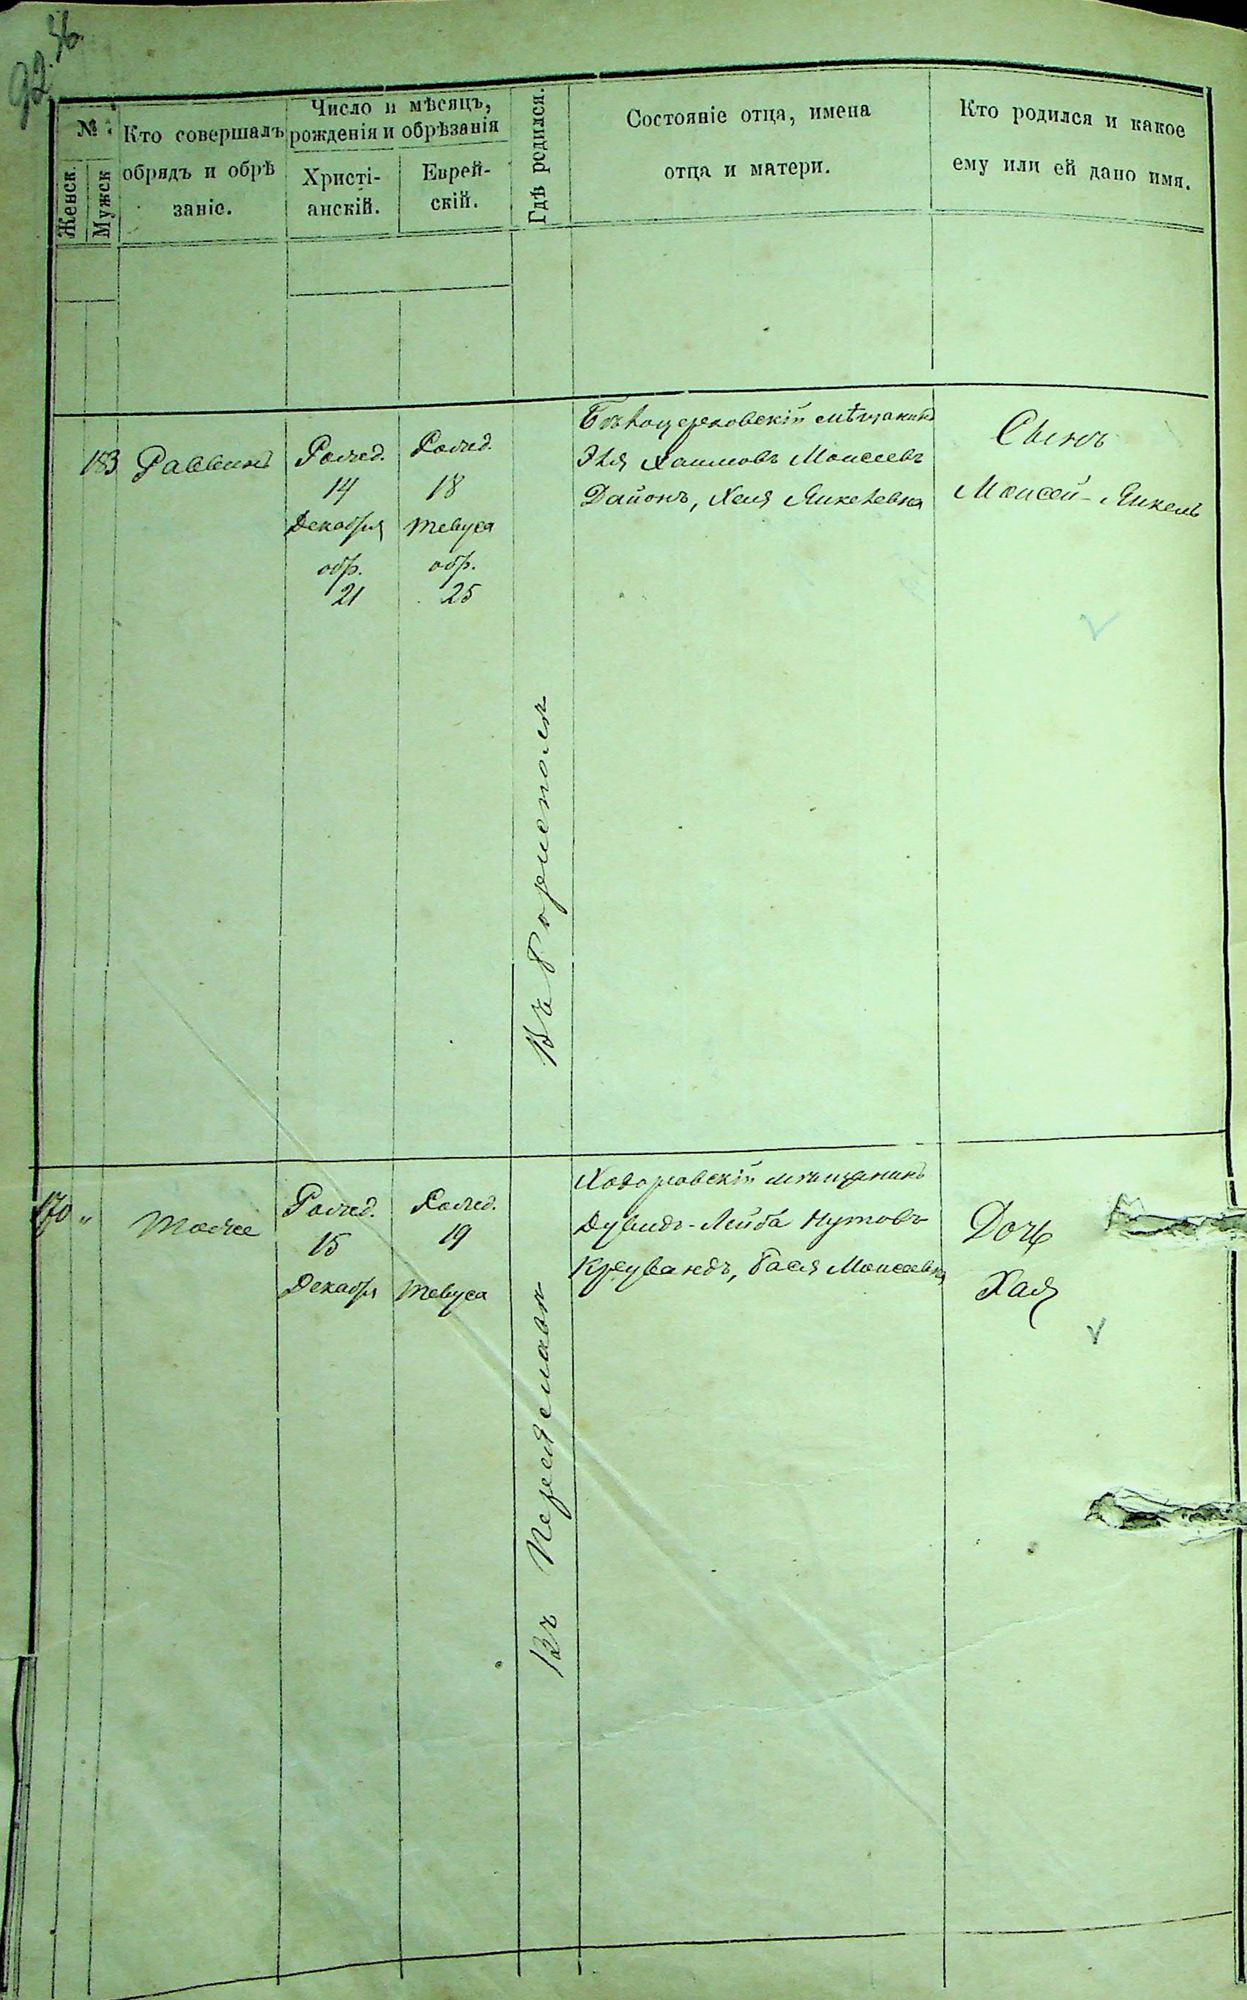 92.
№
Женск.
Мужск
Кто совершалъ
обрядъ и обрѣ
заніе.
Число и мѣсяцъ,
рожденія и обрѣзанія
Христі-
анскій.
Еврей-
скій.
Гдѣ родился.
Состояніе отца, имена
отца и матери.
Кто родился и какое
ему или ей дано имя.
183
Раввинъ
Рожд.
14
Декабря
обр.
21
Рожд.
18
Тевуса
обр.
25
Въ Борисполѣ
Бѣлоцерковскій мѣщанинъ
Эля Хаимовъ Моисеевъ
Дайонъ, Хая Янкелевна
Сынъ
Моисей-Янкель
170 "
Тоже
Рожд.
15
Декабря
Рожд.
19
Тевуса
Въ Переяславѣ
Ходоровскій мѣщанинъ
Дувидъ-Лейба Нутовъ
Бася Моисеевна
Дочь
Хая